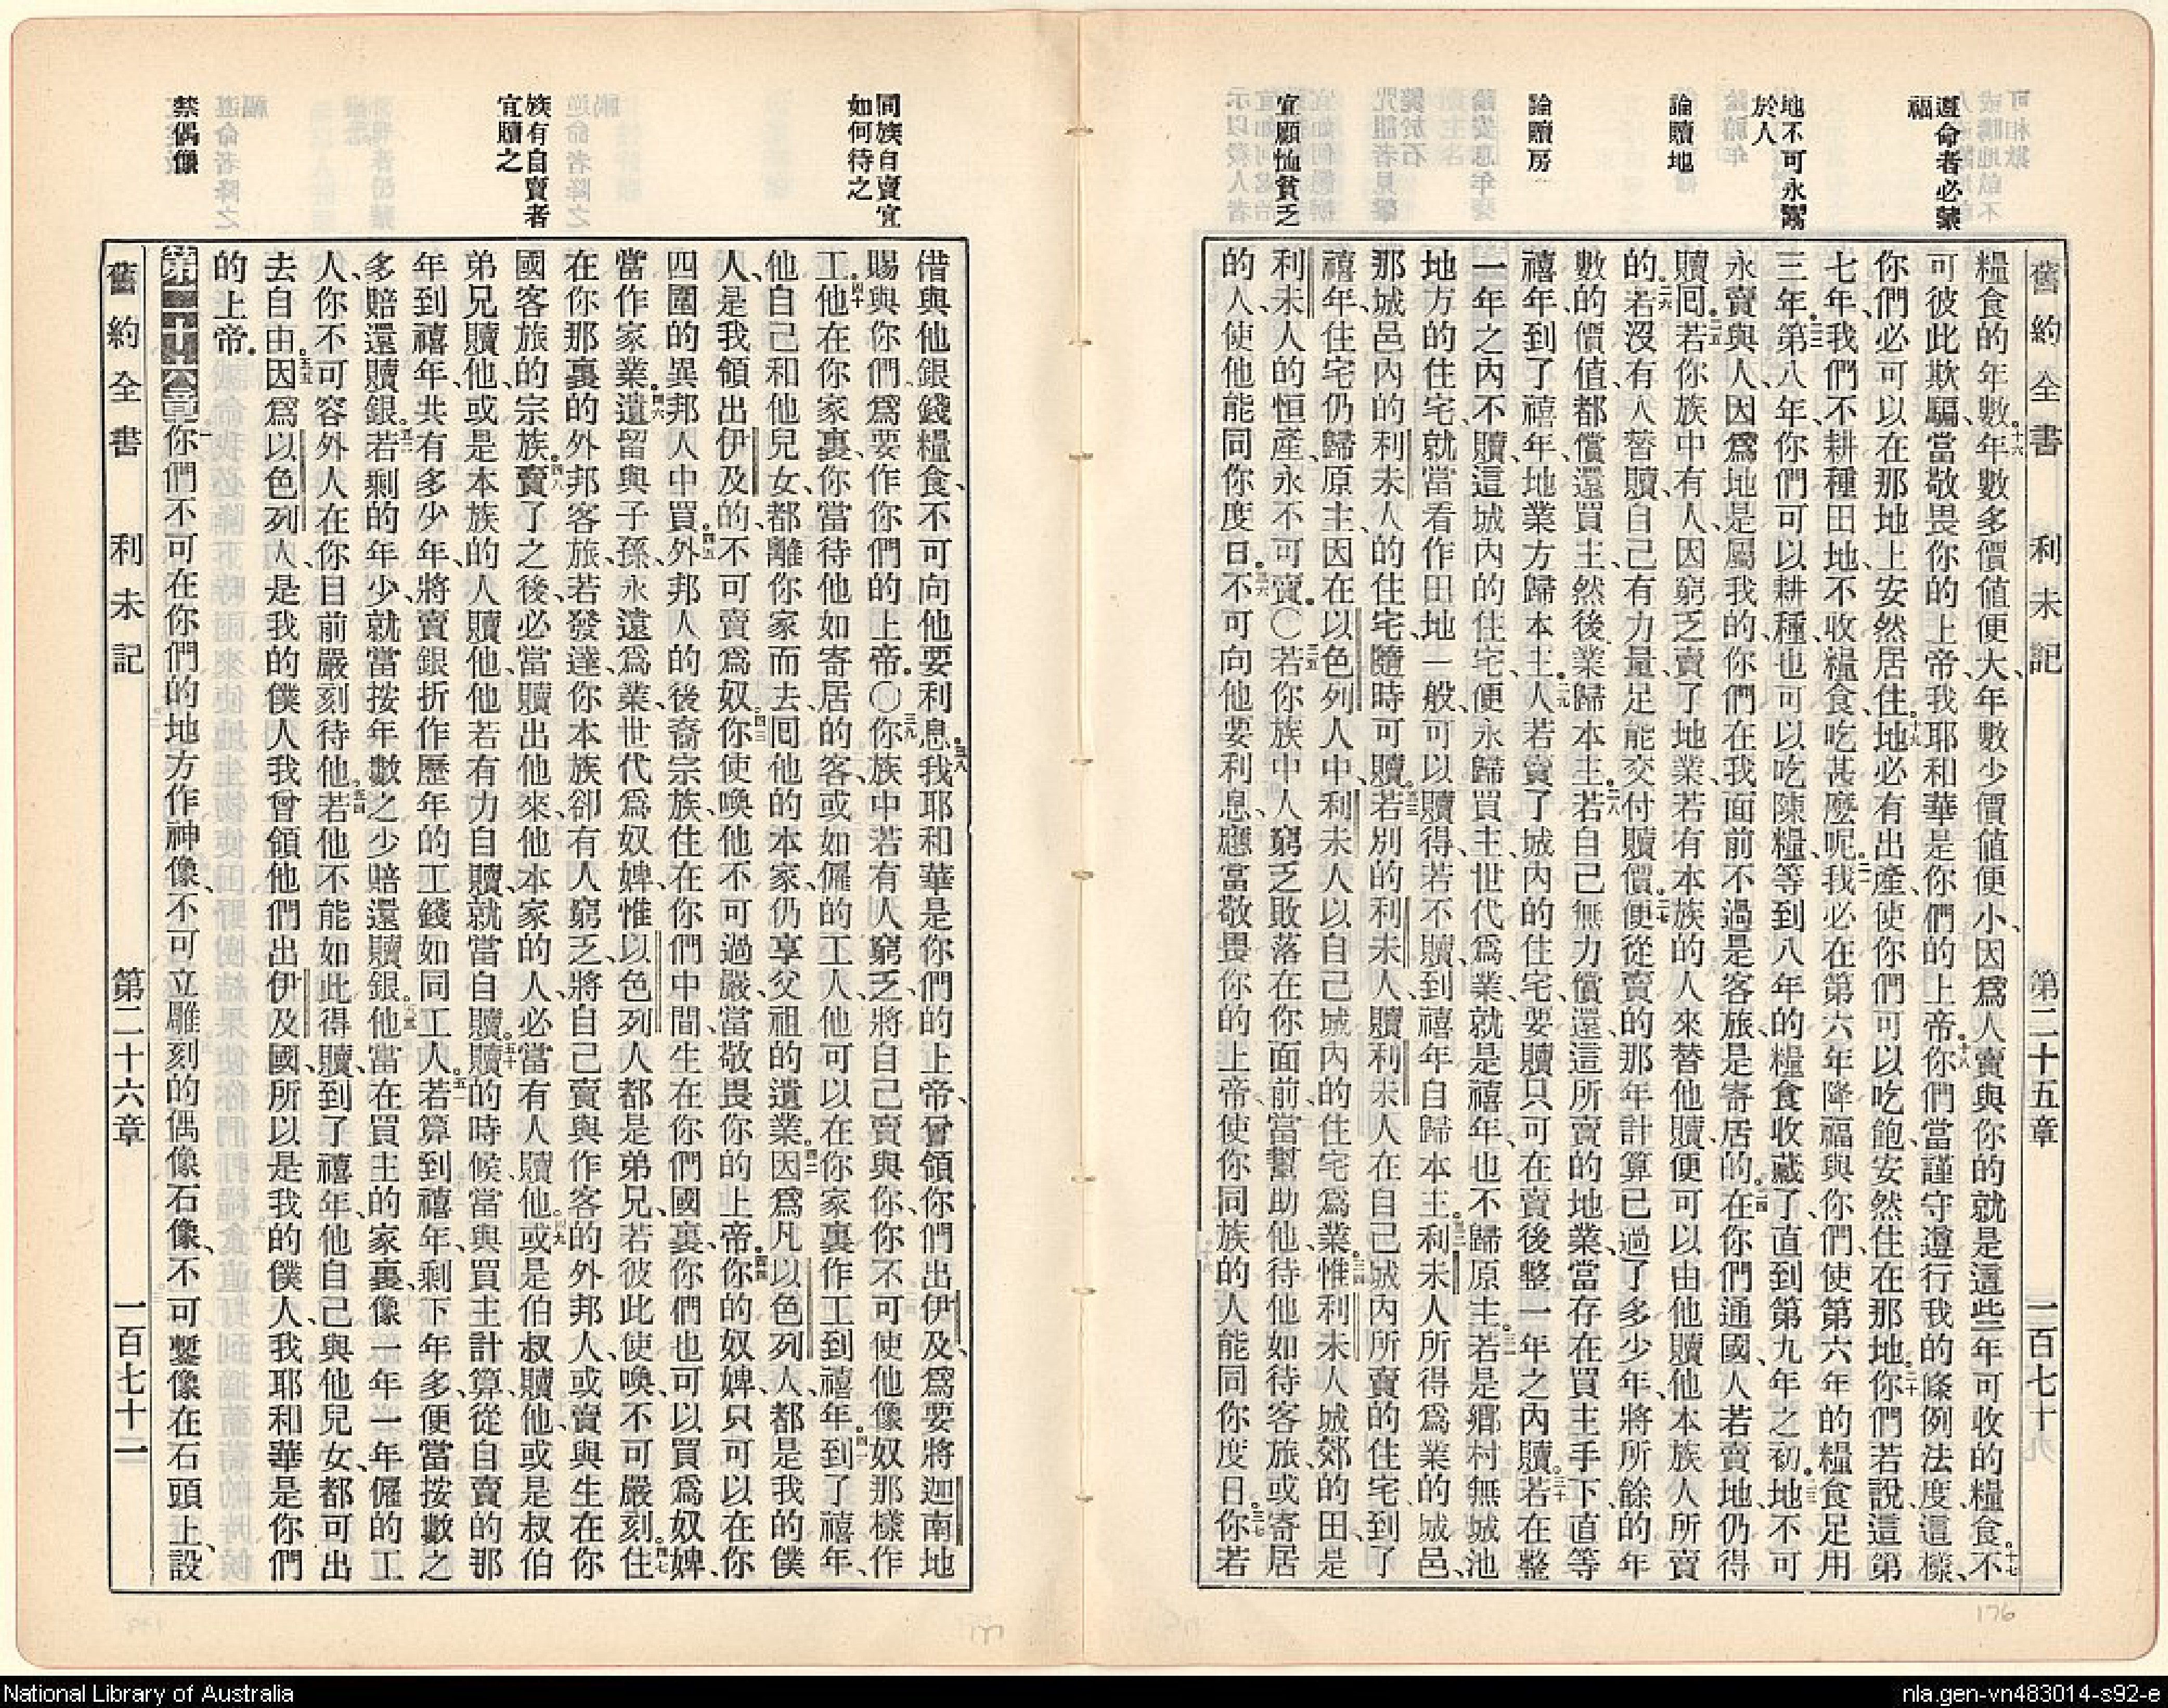 舊約全書 利未記 第二十五章 一百七十
遵命者必蒙
福
地不可永鬻
於人
論贖地
論贖房
宜顧恤貧乏
糧食的年數、十六年數多價值便大、年數少價值便小、因爲人賣與你的就是這些年可收的糧食。十七不
可彼此欺騙、當敬畏你的上帝、我耶和華是你們的上帝。十八你們當謹守遵行我的條例法度、這樣、
你們必可以在那地上安然居住。十九地必有出產、使你們可以吃飽、安然住在那地。二十你們若說、這第
七年、我們不耕種田地、不收糧食、吃甚麼呢。二一我必在第六年降福與你們、使第六年的糧食足用
三年。二二第八年、你們可以耕種、也可以吃陳糧、等到八年的糧食收藏了、直到第九年之初。二三地不可
永賣與人、因爲地是屬我的、你們在我面前不過是客旅、是寄居的。二四在你們通國、人若賣地、仍得
贖囘。二五若你族中有人、因窮乏賣了地業、若有本族的人來替他贖、便可以由他贖他本族人所賣
的。二六若沒有人替贖、自己有力量、足能交付贖價。二七便從賣的那年計算、已過了多少年、將所餘的年
數的價值、都償還買主、然後業歸本主。二八若自己無力償還、這所賣的地業、當存在買主手下、直等
禧年、到了禧年、地業方歸本主。二九人若賣了城內的住宅、要贖只可在賣後整一年之內贖。三十若在整
一年之內不贖、這城內的住宅、便永歸買主、世代爲業、就是禧年、也不歸原主。三一若是鄉村無城池
地方的住宅、就當看作田地一般、可以贖得、若不贖、到禧年自歸本主。三二利未人所得爲業的城邑、
那城邑內的利未人的住宅、隨時可贖。三三若別的利未人、贖利未人在自己城內所賣的住宅、到了
禧年、住宅仍歸原主、因在以色列人中、利未人以自己城內的住宅爲業。三四惟利未人城郊的田、是
利未人的恒產、永不可賣。〇三五若你族中人窮乏敗落在你面前、當幫助他、待他如待客旅、或寄居
的人、使他能同你度日。三六不可向他要利息、應當敬畏你的上帝、使你同族的人能同你度日。三七你若
同族自賣宜
如何待之
族有自賣者
宜贖之
禁偶像
借與他銀錢糧食、不可向他要利息。三八我耶和華是你們的上帝、曾領你們出伊及、爲要將迦南地
賜與你們、爲要作你們的上帝。〇三九你族中若有人窮乏、將自己賣與你、你不可使他像奴那樣作
工。四十他在你家裏、你當待他如寄居的客、或如僱的工人、他可以在你家裏作工到禧年。四一到了禧年、
他自己和他兒女、都離你家而去、囘他的本家、仍享父祖的遺業。四二因爲凡以色列人、都是我的僕
人、是我領出伊及的、不可賣爲奴。四三你使喚他不可過嚴、當敬畏你的上帝。四四你的奴婢、只可以在你
四圍的異邦人中買。四五外邦人的後裔宗族、住在你們中間、生在你們國裏、你們也可以買爲奴婢、
當作家業。四六遺留與子孫、永遠爲業、世代爲奴婢、惟以色列人都是弟兄、若彼此使喚、不可嚴刻。四七住
在你那裏的外邦客旅、若發達、你本族卻有人窮乏、將自己賣與作客的外邦人、或賣與生在你
國客旅的宗族。四八賣了之後、必當贖出他來、他本家的人、必當有人贖他。四九或是伯叔贖他、或是叔伯
弟兄贖他、或是本族的人贖他、他若有力自贖、就當自贖。五十贖的時候、當與買主計算、從自賣的那
年到禧年、共有多少年、將賣銀折作歷年的工錢、如同工人。五一若算到禧年、剩下年多、便當按數之
多賠還贖銀。五二若剩的年少、就當按年數之少賠還贖銀。五三他當在買主的家裏、像一年一年僱的工
人、你不可容外人在你目前嚴刻待他。五四若他不能如此得贖、到了禧年、他自己與他兒女、都可出
去自由。五五因爲以色列人是我的僕人、我曾領他們出伊及國、所以是我的僕人、我耶和華是你們
的上帝。
第二十六章 一你們不可在你們的地方作神像、不可立雕刻的偶像石像、不可鏨像在石頭上、設
舊約全書 利未記 第二十六章 一百七十一
176
177
National Library of Australia
nla.gen-vn483014-s92-e